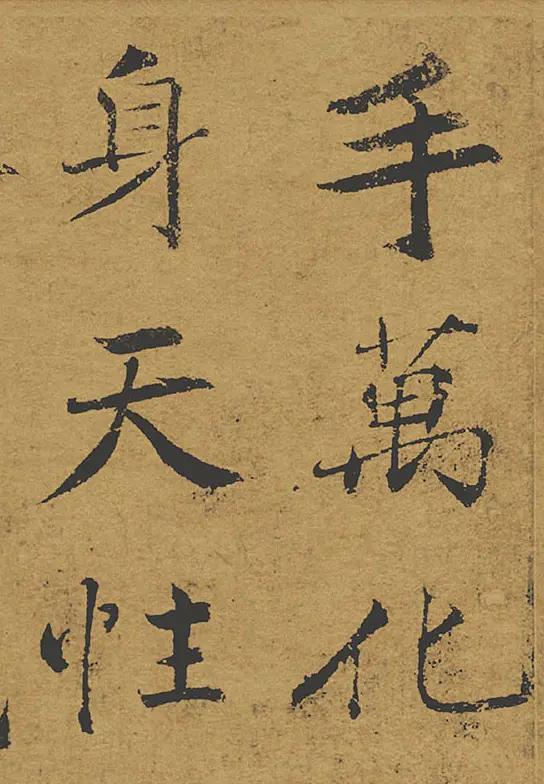 手萬化
身天性